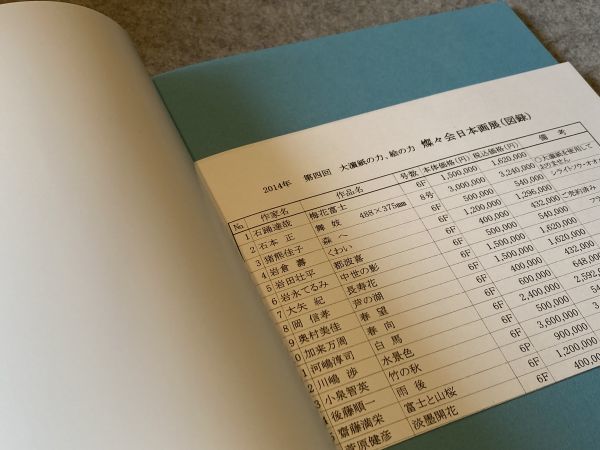 2014年 第四回 大濱紙の力、絵の力 燦々会日本画展(図録)
№ 作家名 作品名 号数 本体価格(円) 税込価格(円) 備考
1 石踊達哉 梅花富士 6F 1,500,000 1,620,000
2 石本 正 舞妓 488×375㎜ 8号 3,000,000 3,240,000 ○大濱紙を使用しておりません
3 猪熊佳子 森へ 6F 500,000 540,000 シライトソウ・オオ
4 岩倉 壽 くわい 6F 1,200,000 1,296,000
5 岩田壮平 都波喜 6F 400,000 432,000 ご売約済み
6 岩永てるみ 中世の影 6F 500,000 540,000 フラ
7 大矢 紀 長寿花 6F 1,500,000 1,620,000
8 岡 信孝 芦の湖 6F 1,500,000 1,620,000
9 奥村美佳 春望 6F 400,000 432,000
0 加来万周 春向 6F 600,000 648,000
1 河嶋淳司 白馬 6F 2,400,000 2,592,0
2 川嶋 渉 水景色 6F 500,000 540
3 小泉智英 竹の秋 6F 3,600,000
4 後藤順一 雨後 6F 900,000
5 齋藤満栄 富士と山桜 6F 1,200,000
菅原健彦 淡墨開花 6F 400,00